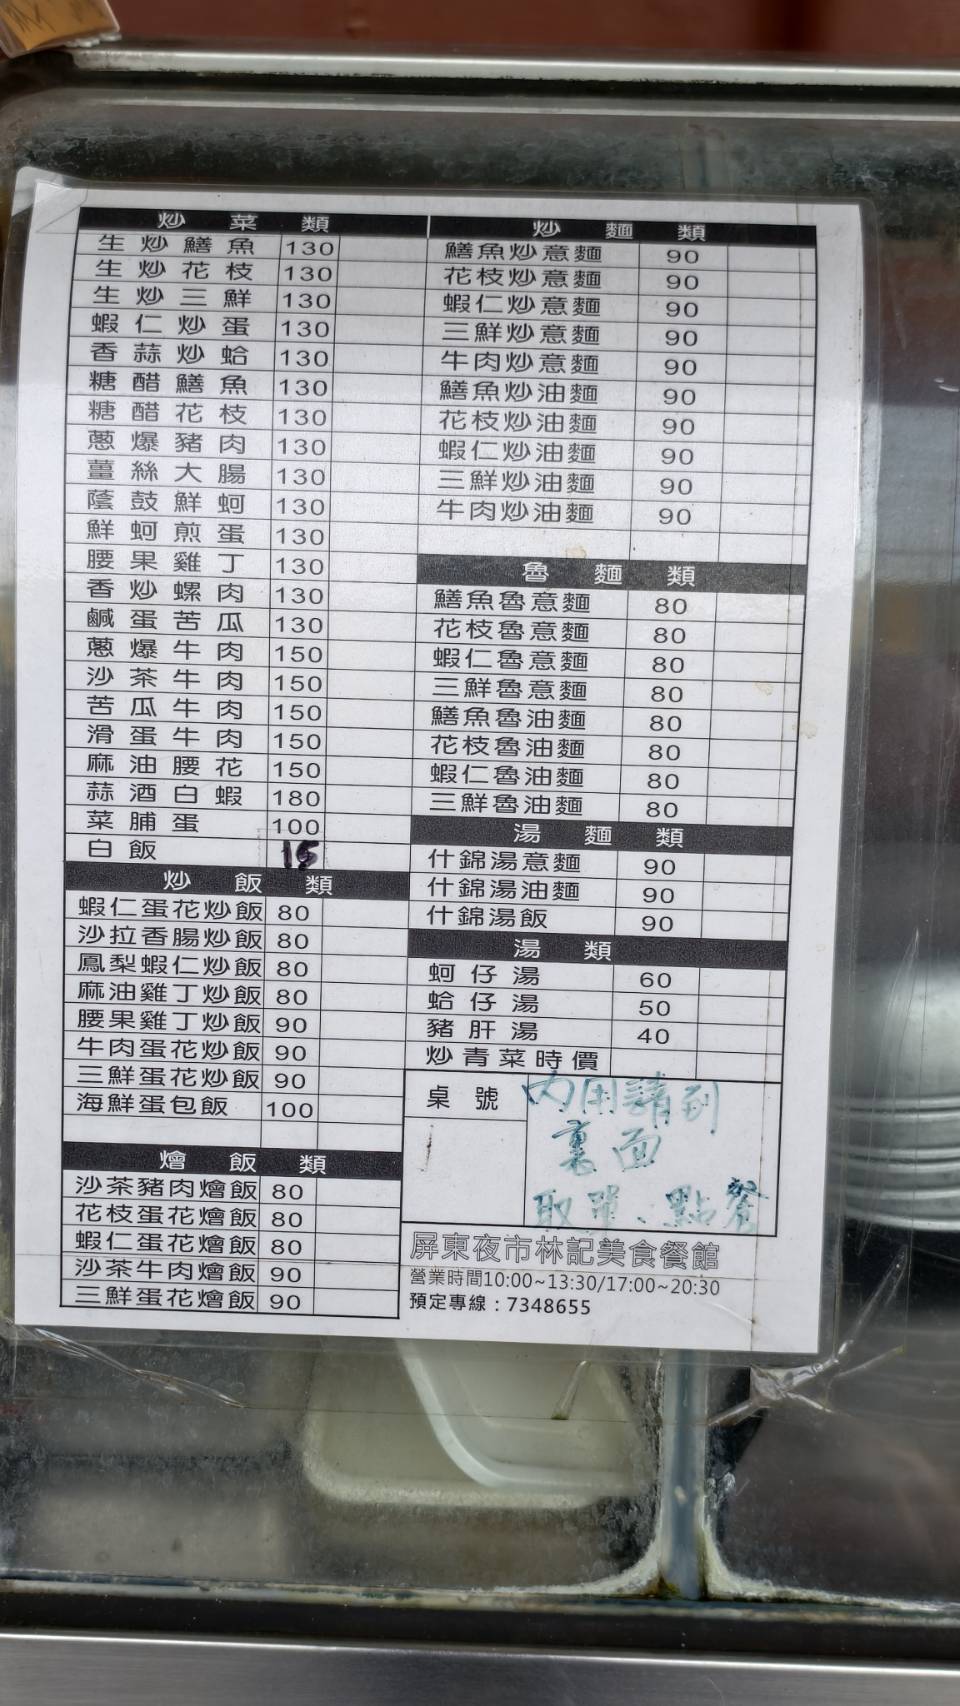 炒菜類
生炒鱔魚 130
生炒花枝 130
生炒三鮮 130
蝦仁炒蛋 130
香蒜炒蛤 130
糖醋鱔魚 130
糖醋花枝 130
蔥爆豬肉 130
薑絲大腸 130
蔭鼓鮮蚵 130
鮮蚵煎蛋 130
腰果雞丁 130
香炒螺肉 130
鹹蛋苦瓜 130
蔥爆牛肉 150
沙茶牛肉 150
苦瓜牛肉 150
滑蛋牛肉 150
麻油腰花 150
蒜酒白蝦 180
菜脯蛋 100
白飯 15
炒飯類
蝦仁蛋花炒飯 80
沙拉香腸炒飯 80
鳳梨蝦仁炒飯 80
麻油雞丁炒飯 80
腰果雞丁炒飯 90
牛肉蛋花炒飯 90
三鮮蛋花炒飯 90
海鮮蛋包飯 100
燴飯類
沙茶豬肉燴飯 80
花枝蛋花燴飯 80
蝦仁蛋花燴飯 80
沙茶牛肉燴飯 90
三鮮蛋花燴飯 90
炒麵類
鱔魚炒意麵 90
花枝炒意麵 90
蝦仁炒意麵 90
三鮮炒意麵 90
牛肉炒意麵 90
鱔魚炒油麵 90
花枝炒油麵 90
蝦仁炒油麵 90
三鮮炒油麵 90
牛肉炒油麵 90
魯麵類
鱔魚魯意麵 80
花枝魯意麵 80
蝦仁魯意麵 80
三鮮魯意麵 80
鱔魚魯油麵 80
花枝魯油麵 80
蝦仁魯油麵 80
三鮮魯油麵 80
湯麵類
什錦湯意麵 90
什錦湯油麵 90
什錦湯飯 90
湯類
蚵仔湯 60
蛤仔湯 50
豬肝湯 40
炒青菜時價
桌號
內用請到
裏面
取單、點餐
屏東夜市林記美食餐館
營業時間10:00~13:30/17:00~20:30
預定專線：7348655